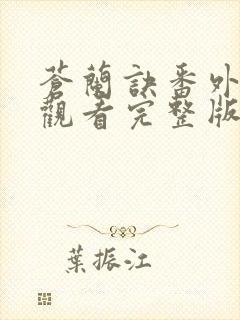 蒼蘭訣番外
觀看完整版
葉振江